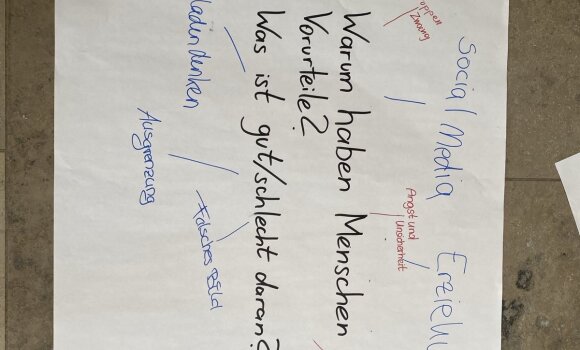 Social Media Erziehu
zwang
Angst und
Unsicherheit
Warum haben Menschen
Vorurteile?
Was ist gut/schlecht daran?
ladendenken
Falsches Bild
Ausgrenzung